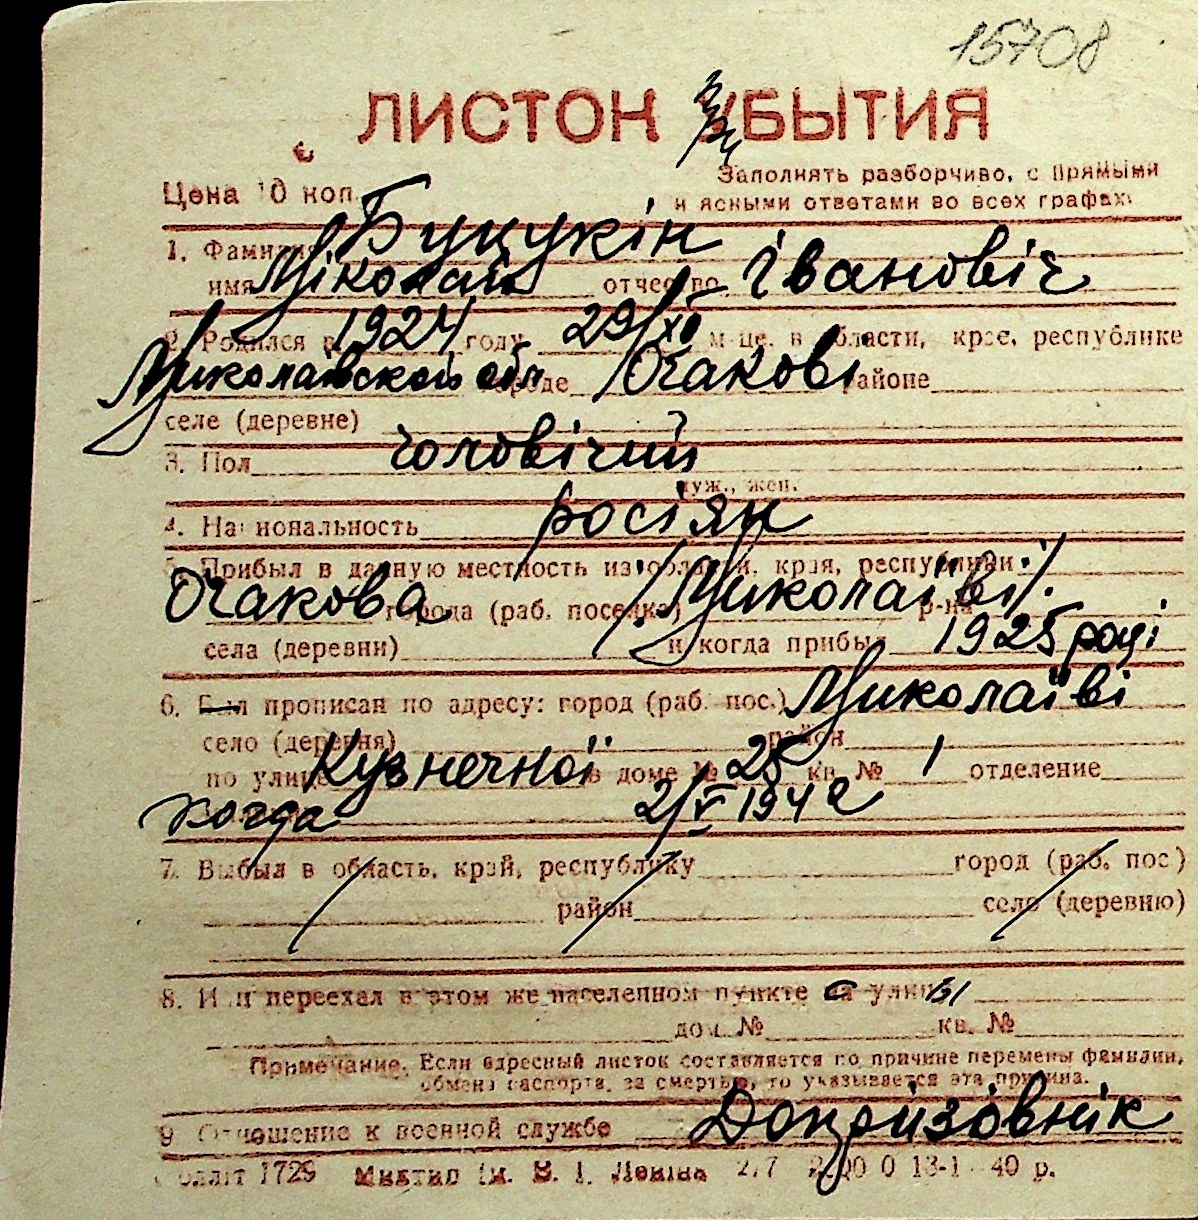 15708
ЛИСТОК УБЫТИЯ
Цена 10 коп. Заполнять разборчиво, с прямыми
и ясными ответами во всех графах.
1. Фамилия Буцукін
имя Міколай отчество Івановіч
2. Родился в 1924 году 29/XII м-це, в области, крае, республике
Миколаївской обл городе Очакові районе
селе (деревне)
3. Пол чоловічий
муж., жен.
4. Национальность росіян
5. Прибыл в данную местность из области, края, республики
Очакова города (раб. поселка) /Миколаїві/. р-на
села (деревни) и когда прибыл 1925 році
6. Был прописан по адресу: город (раб. пос.) Миколаїві
село (деревня) район
по улице Кузнечної в доме № 25 кв. № 1 отделение
когда 2/V 1942
7. Выбыл в область, край, республику город (раб. пос.)
район село (деревню)
8. Или переехал в этом же населенном пункте с улицы
дом № кв. №
Примечание. Если адресный листок составляется по причине перемены фамилии,
обмена паспорта, за смертью, то указывается эта причина.
9. Отношение к военной службе Допризовнік
1729 Миктип ім. В. І. Леніна 13-1 40 р.